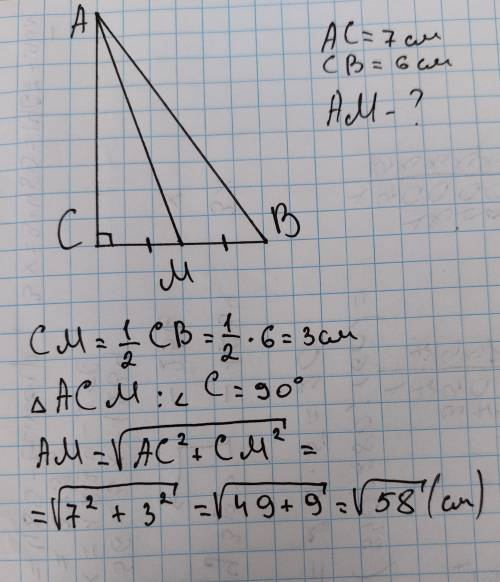 A
C
M
B
AC = 7 см
CB = 6 см
AM - ?
CM = 1/2 CB = 1/2 · 6 = 3 см
△ ACM : ∠ C = 90°
AM = √(AC² + CM²) =
= √(7² + 3²) = √(49 + 9) = √58 (см)